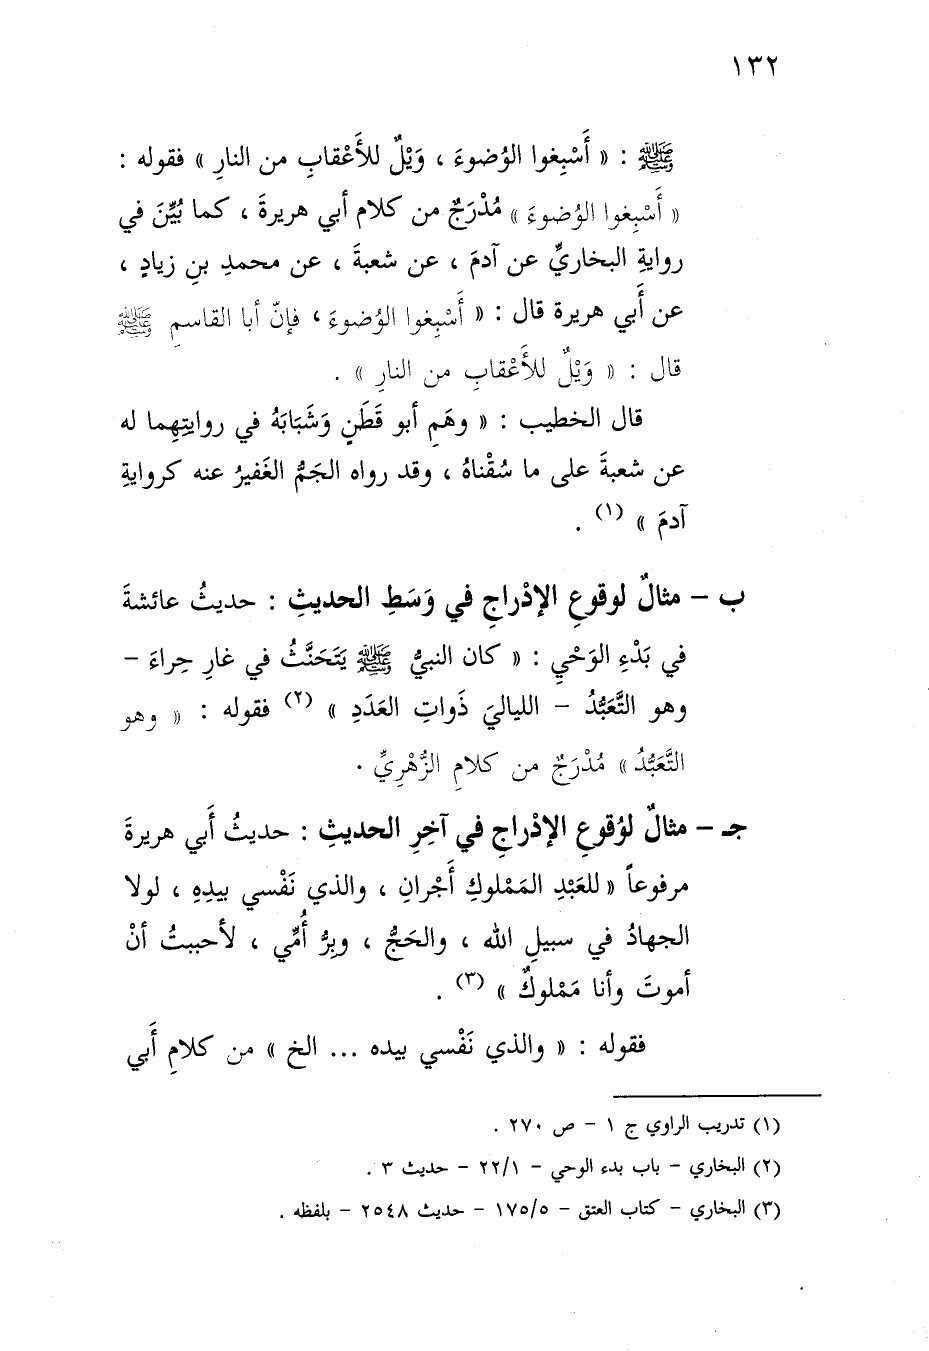 ١٣٢
ﷺ : « أَسْبِغوا الوُضوءَ ، وَيْلٌ للأَعْقابِ من النارِ » فقوله :
« أَسْبِغوا الوُضوءَ » مُدْرَجٌ من كلام أبي هريرةَ ، كما بُيِّنَ في
روايةِ البخاريِّ عن آدمَ ، عن شعبةَ ، عن محمدِ بنِ زيادٍ ،
عن أَبي هريرة قال : « أَسْبِغوا الوُضوءَ ، فإنّ أبا القاسمِ ﷺ
قال : « وَيْلٌ للأَعْقابِ من النارِ » .
قال الخطيب : « وهَمِ أبو قَطَنٍ وَشَبَابَةُ في روايتِهِما له
عن شعبةَ على ما سُقْناهُ ، وقد رواه الجَمُّ الغَفيرُ عنه كروايةِ
آدمَ » (١) .
ب – مثالٌ لوقوعِ الإدْراجِ في وَسَطِ الحديثِ : حديثُ عائشةَ
في بَدْءِ الوَحْيِ : « كان النبيُّ ﷺ يَتَحَنَّثُ في غارِ حِراءَ –
وهو التَّعَبُّدُ – اللياليَ ذَواتِ العَدَدِ » (٢) فقوله : « وهو
التَّعَبُّدُ » مُدْرَجٌ من كلامِ الزُّهْرِيِّ .
جـ – مثالٌ لوُقوعِ الإدْراجِ في آخِرِ الحديثِ : حديثُ أَبي هريرةَ
مرفوعاً « للعَبْدِ المَمْلوكِ أَجْرانِ ، والذي نَفْسي بيدِهِ ، لولا
الجهادُ في سبيلِ الله ، والحَجُّ ، وبِرُّ أُمِّي ، لأحببتُ أنْ
أموتَ وأنا مَمْلوكٌ » (٣) .
فقوله : « والذي نَفْسي بيده ... الخ » من كلامِ أَبي
(١) تدريب الراوي ج ١ – ص ٢٧٠ .
(٢) البخاري – باب بدء الوحي – ٢٢/١ – حديث ٣ .
(٣) البخاري – كتاب العتق – ١٧٥/٥ – حديث ٢٥٤٨ – بلفظه .